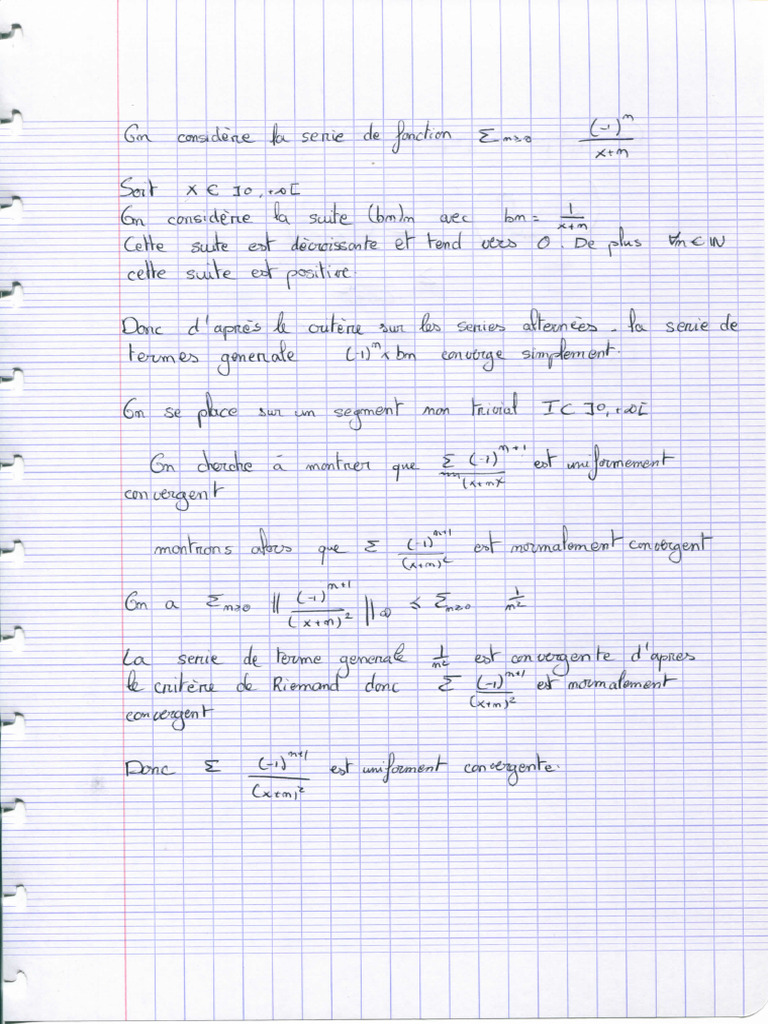 On considère la serie de fonction Σn≥0 (-1)^n/(x+n)
Soit x ∈ ]0,+∞[
On considère la suite (bn)n avec bn = 1/(x+n)
Cette suite est décroissante et tend vers 0. De plus ∀n ∈ IN
cette suite est positive.
Donc d'après le critère sur les series alternées la serie de
termes generale (-1)^n × bn converge simplement.
On se place sur un segment non trivial I ⊂ ]0,+∞[
On cherche à montrer que Σ (-1)^(n+1)/(x+n)² est uniformement
convergent
montrons alors que Σ (-1)^(n+1)/(x+n)² est normalement convergent
On a Σn≥0 ||(-1)^(n+1)/(x+n)²||∞ ≤ Σn≥0 1/n²
La serie de terme generale 1/n² est convergente d'apres
le critère de Riemand donc Σ (-1)^(n+1)/(x+n)² est normalement
convergent
Donc Σ (-1)^(n+1)/(x+n)² est uniforment convergente.